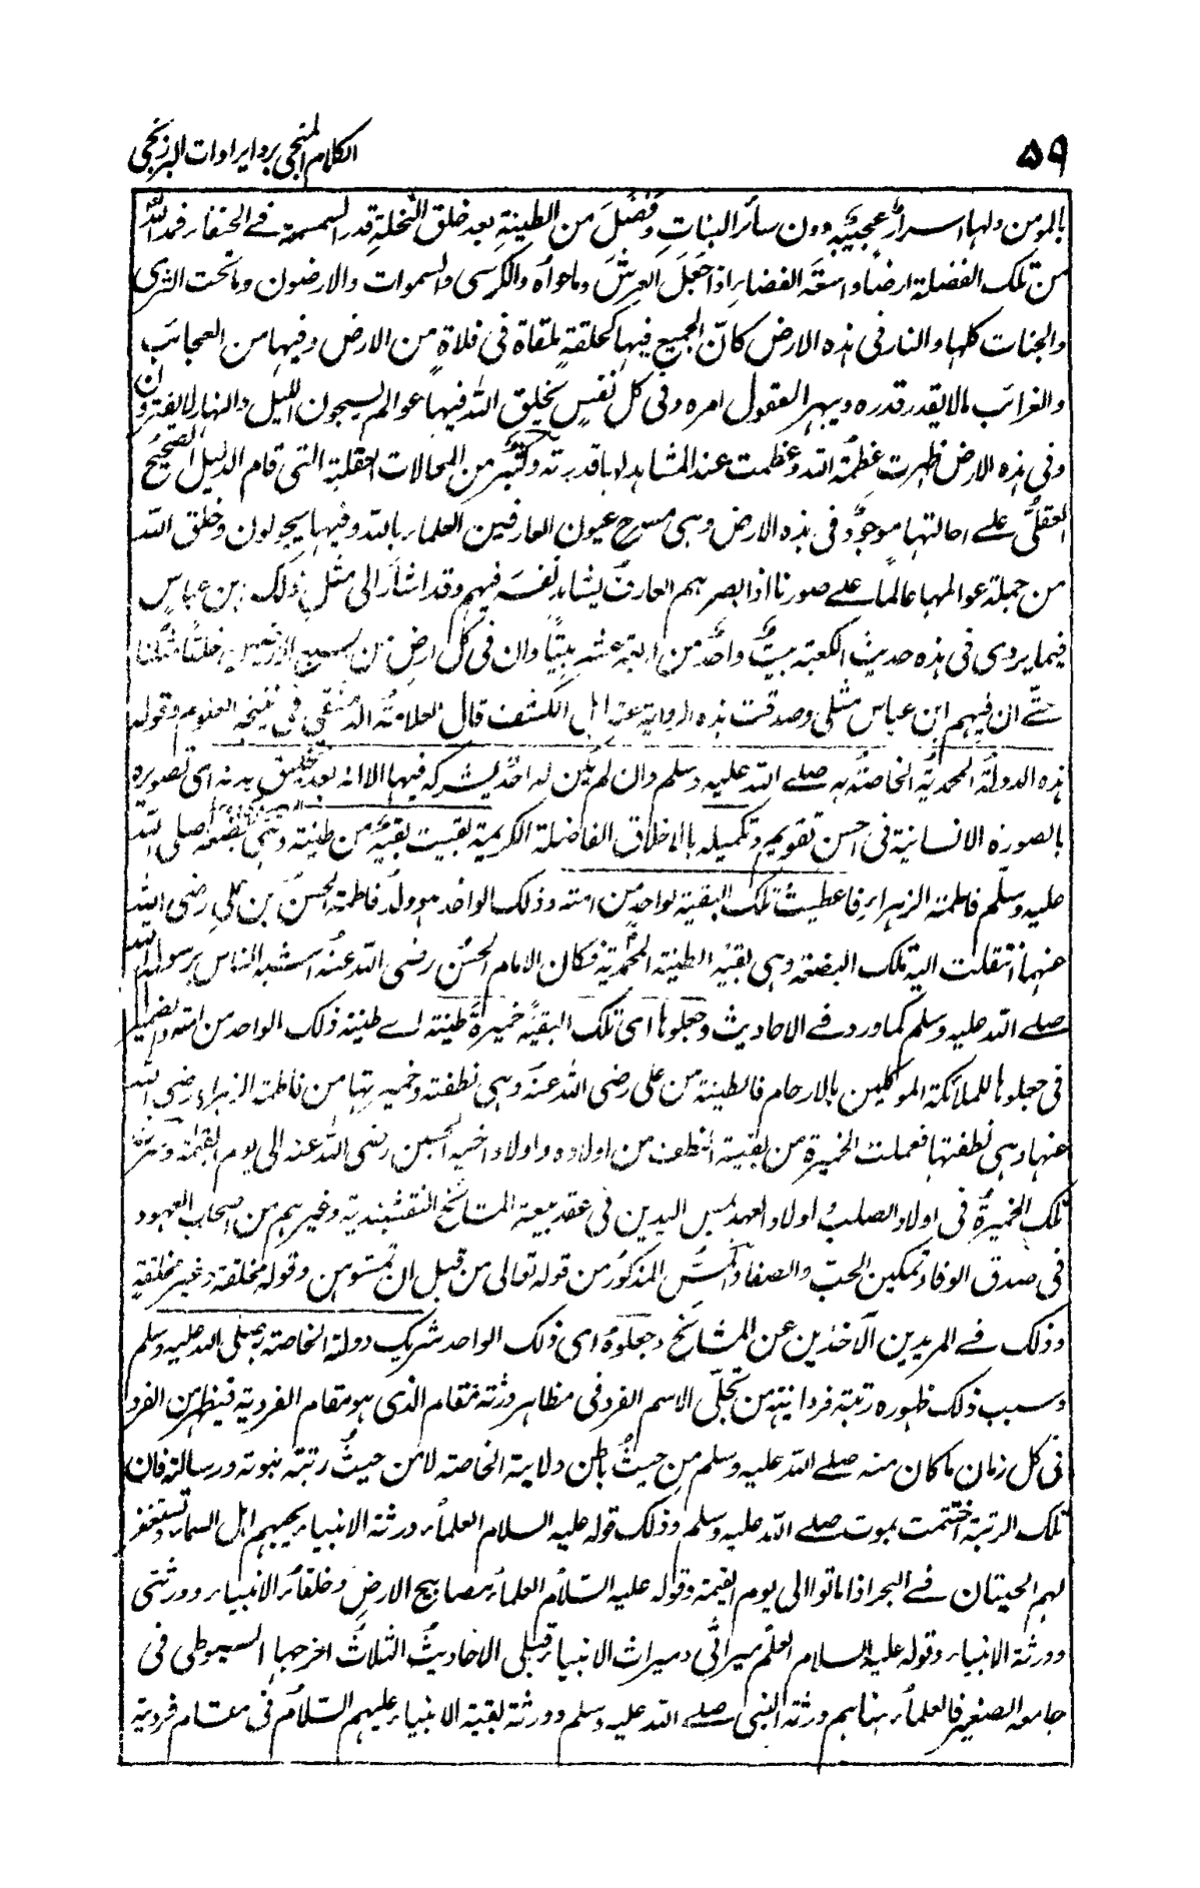 ٥٩
الكلام المنجى برد ايرادات البرزنجى
بالمومن ولها اسرار عجيبة دون سائر النبات وفضل من الطينة بعد خلق النخلة قدر السمسمة فى الخفاء فمد الله
من تلك الفضلة ارضا واسعة الفضاء اذا جعل العرش وما حواه والكرسى والسموات والارضون وما تحت الثرى
والجنات كلها والنار فى هذه الارض كان الجميع فيها كحلقة ملقاة فى فلاة من الارض وفيها من العجائب
والغرائب مالا يقدر قدره ويبهر العقول امره وفى كل نفس يخلق الله فيها عوالم يسبحون الليل والنهار لا يفترون
وفى هذه الارض ظهرت عظمة الله وعظمت عند المشاهد لها قدرته وكثير من المحالات العقلية التى قام الدليل الصحيح
العقلى على احالتها موجود فى هذه الارض وهى مسرح عيون العارفين العلماء بالله وفيها يجولون وخلق الله
من جملة عوالمها عالما على صورنا اذا ابصرهم العارف يشاهد نفسه فيهم وقد اشار الى مثل ذلك ابن عباس
فيما يروى فى هذه حديث الكعبة بيت واحد من اربعة عشر بيتا وان فى كل ارض من سبع الارضين خلقا مثلنا
حتى ان فيهم ابن عباس مثلى وصدقت هذه الرواية عند اهل الكشف قال العلامة الدمشقى فى نتيجة العلوم وقوله
هذه الدولة المحمدية الخاصة به صلى الله عليه وسلم وان لم يكن له احد يشركه فيها الا انه بعد تخليق بدنه اى تصويره
بالصورة الانسانية فى احسن تقويم وتكميله بالاخلاق الفاضلة الكريمة بقيت بقية من طينة وهى بضعة صلى الله
عليه وسلم فاطمة الزهراء فاعطيت تلك البقية لواحد من امته وذلك الواحد هو ولد فاطمة الحسن بن على رضى الله
عنهما انتقلت اليه تلك البضعة وهى بقية الطينة المحمدية فكان الامام الحسن رضى الله عنه اشبه الناس برسول الله
صلى الله عليه وسلم كما ورد فى الاحاديث وجعلوها اى تلك البقية خميرة طينة اى طينة ذلك الواحد من امته والضمير
فى جعلوها للملائكة الموكلين بالارحام فالطينة من على رضى الله عنه وهى نطفته وخميرتها من فاطمة الزهراء رضى الله
عنها وهى نطفتها فعملت الخميرة من بقية النطف من اولاده واولاد اخيه الحسين رضى الله عنه الى يوم القيمة
تلك الخميرة فى اولاد الصلب اولاد العهد لمس اليدين فى عقد بيعة المشائخ النقشبندية وغيرهم من اصحاب العهود
فى صدق الوفاء وتمكين الحب والصفاء والمس المذكور من قوله تعالى من قبل ان تمسوهن وقوله مخلقة وغير مخلقة
وذلك فى المريدين الآخذين عن المشائخ وجعلوه اى ذلك الواحد شريك دولة الخاصة به صلى الله عليه وسلم
وسبب ذلك ظهوره رتبة فردانيته من تجلى الاسم الفرد فى مظاهر ورثة مقام الذى هو مقام الفردية فيظهر من الفرد
فى كل زمان ما كان منه صلى الله عليه وسلم من حيث باطن ولايته الخاصة لا من حيث رتبة نبوته ورسالة فان
تلك الرتبة اختتمت بموت صلى الله عليه وسلم وذلك قوله عليه السلام العلماء ورثة الانبياء يحبهم اهل السماء وتستغفر
لهم الحيتان فى البحر اذا ماتوا الى يوم القيمة وقوله عليه السلام العلماء مصابيح الارض وخلفاء الانبياء وورثتى
وورثة الانبياء وقوله عليه السلام العلم ميراثى وميراث الانبياء قبلى الاحاديث الثلاث اخرجها السيوطى فى
جامعه الصغير فالعلماء هنا هم ورثة النبى صلى الله عليه وسلم وورثة لبقية الانبياء عليهم السلام فى مقام فردية